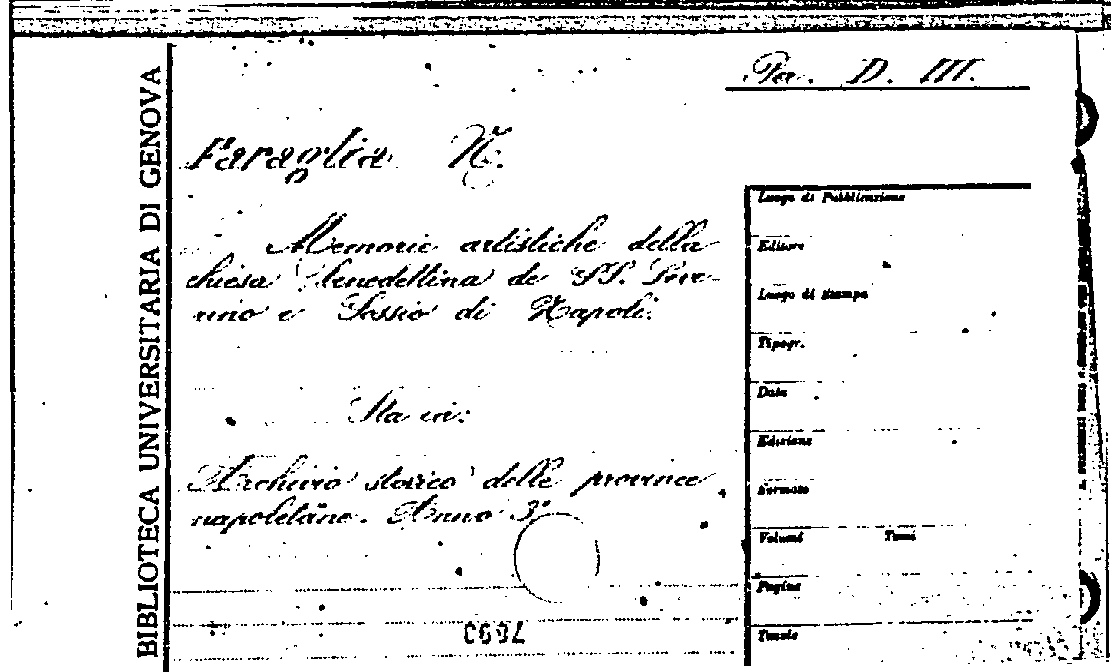 BIBLIOTECA UNIVERSITARIA DI GENOVA
Per. D. III.
Faraglia N.
Memorie artistiche della
chiesa benedettina de SS. Seve-
rino e Sossio di Napoli.
Sta in:
Archivio storico delle province
napoletane. Anno 3°
Luogo di Pubblicazione
Editore
Luogo di Stampa
Tipogr.
Data
Edizione
Formato
Volumi Tomi
Pagine
Tavole